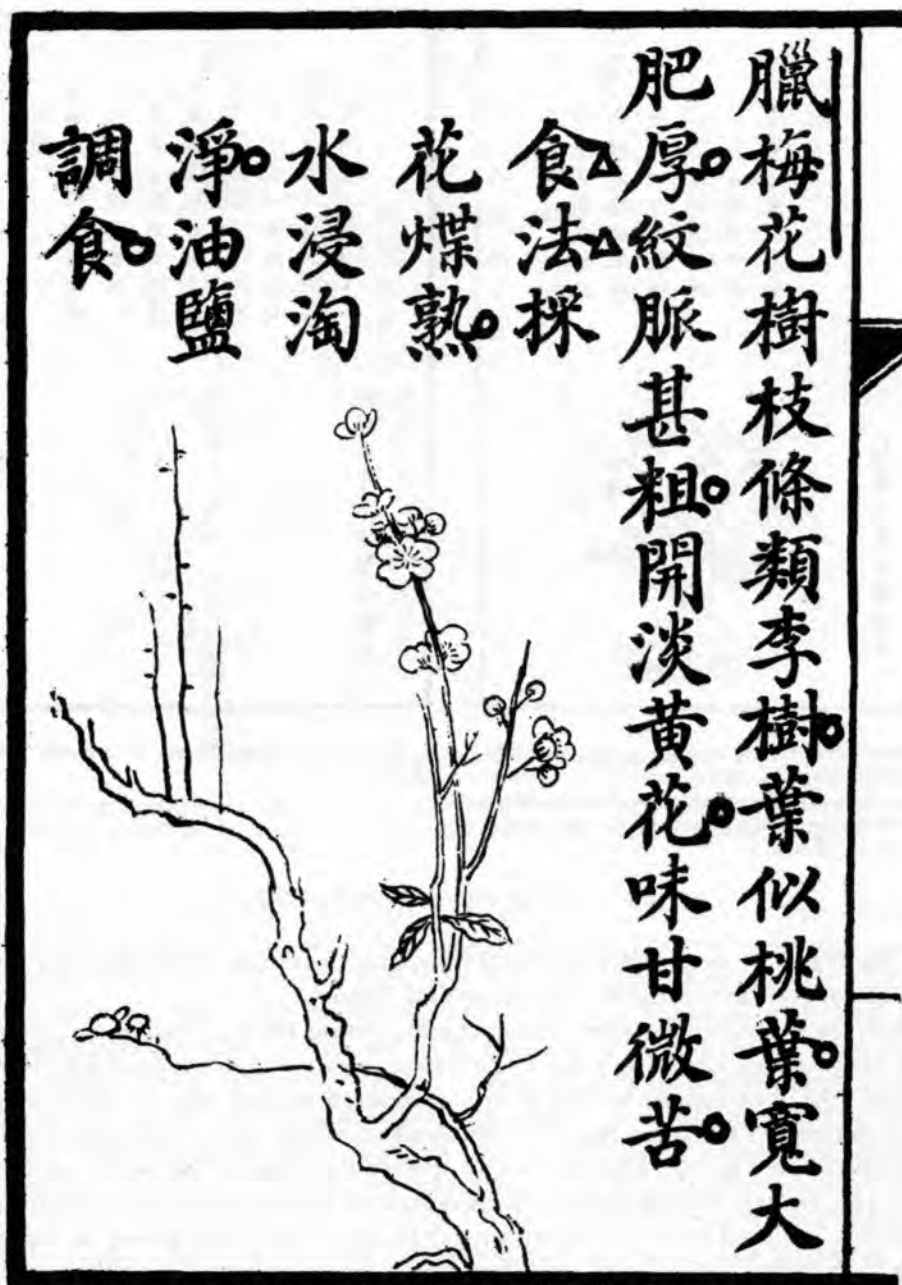 臘梅花樹枝條類李樹。葉似桃葉。寬大
肥厚。紋脈甚粗。開淡黄花。味甘微苦。
食△法△採
花煠熟。
水浸淘
淨。油鹽
調食。